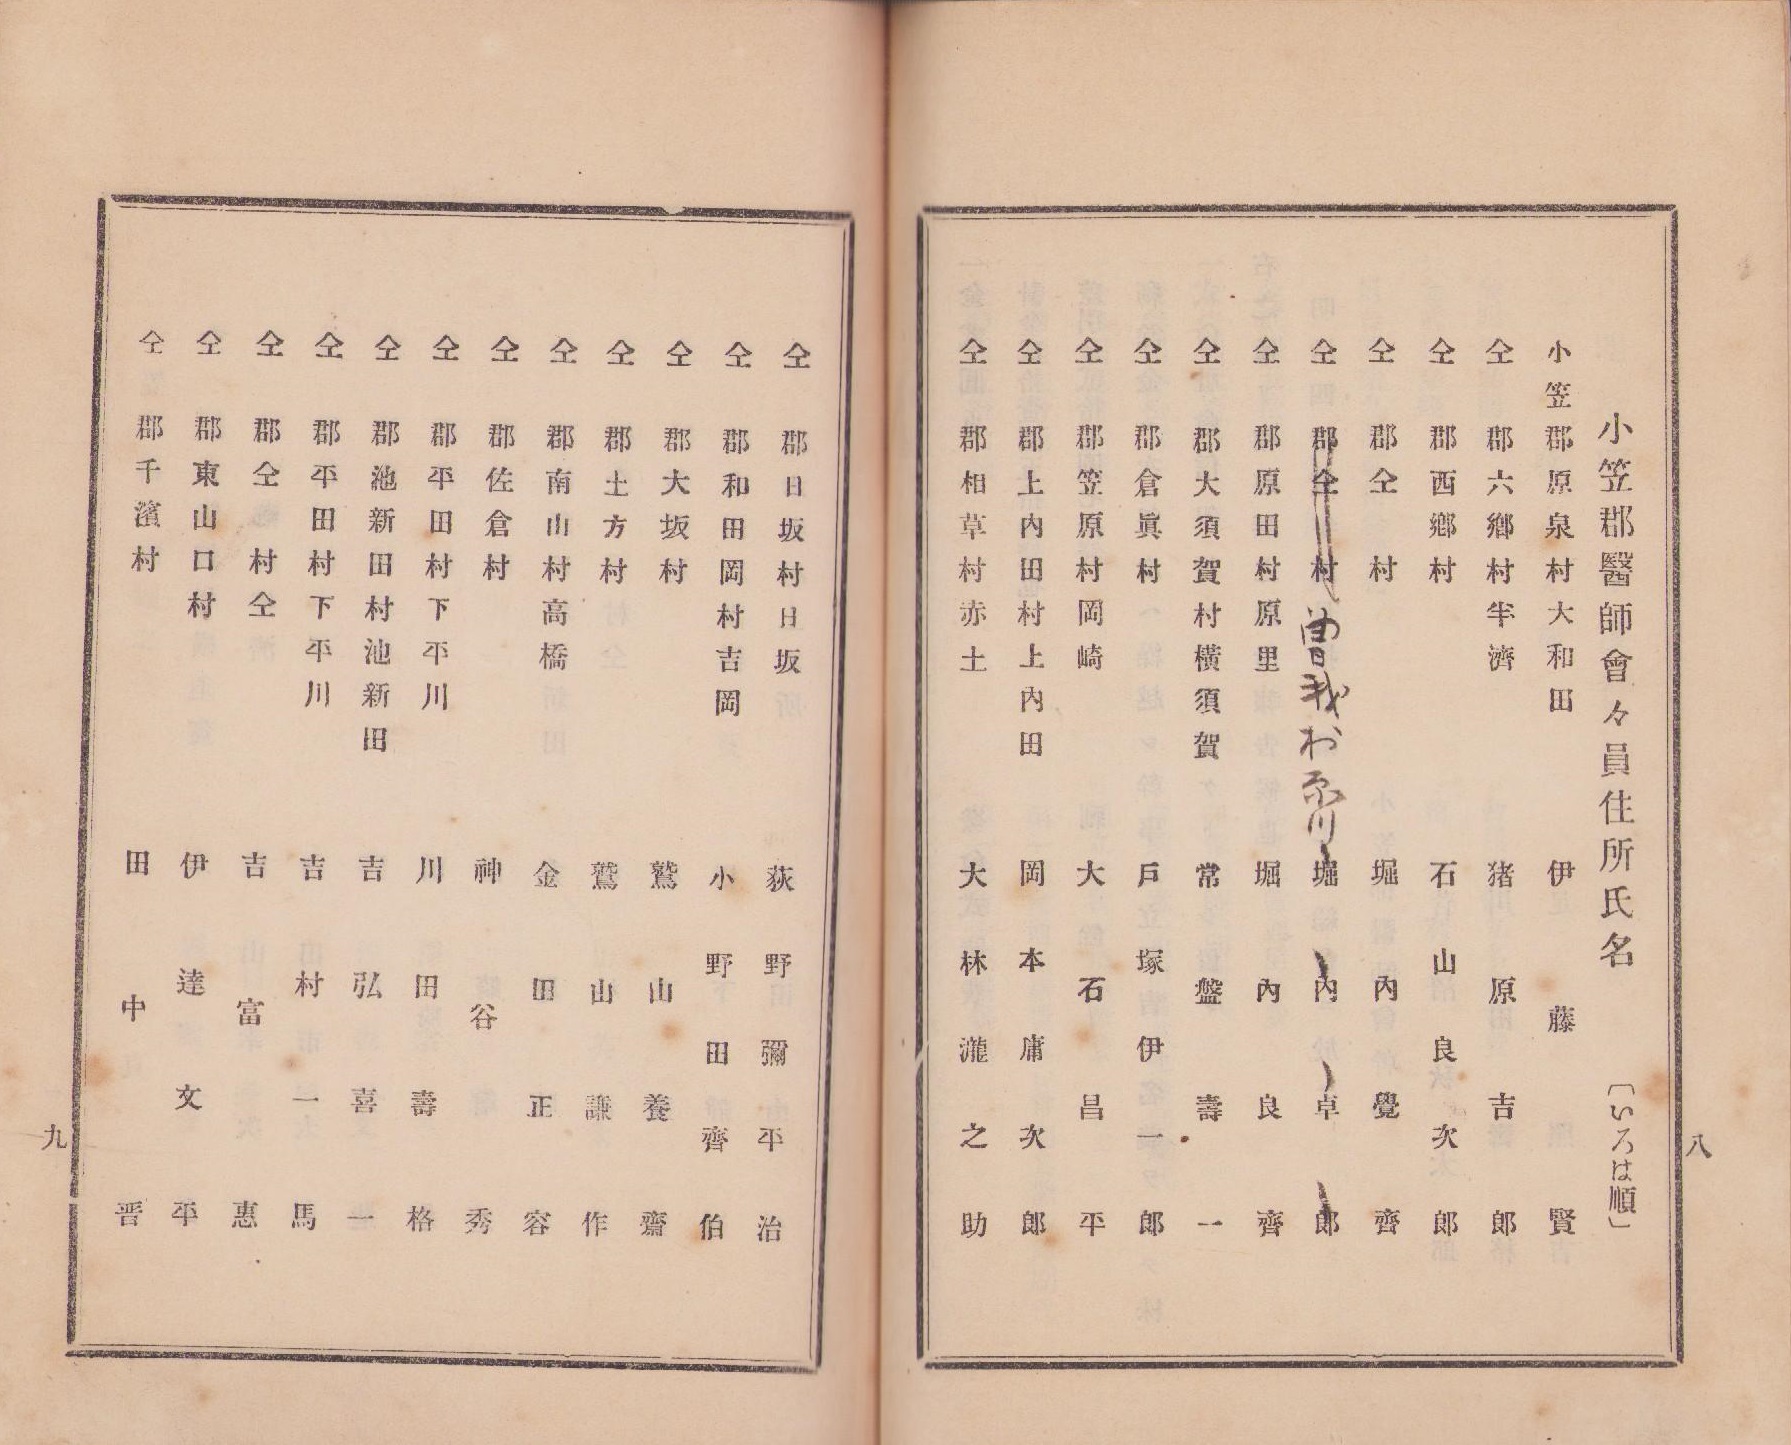 小笠郡醫師會々員住所氏名 〔いろは順〕
小笠郡原泉村大和田 伊藤賢
仝郡六鄕村半濟 猪原吉郎
仝郡西鄕村 石山良次郎
仝郡仝村 堀內覺齊
仝郡仝村 曽我村原川 堀內卓郎
仝郡原田村原里 堀內良齊
仝郡大須賀村橫須賀 常盤壽一
仝郡倉眞村 戶塚伊一郎
仝郡笠原村岡崎 大石昌平
仝郡上內田村上內田 岡本庸次郎
仝郡相草村赤土 大林瀧之助
八
仝郡日坂村日坂 荻野彌平治
仝郡和田岡村吉岡 小野田齊伯
仝郡大坂村 鷲山養齋
仝郡土方村 鷲山謙作
仝郡南山村高橋 金田正容
仝郡佐倉村 神谷秀
仝郡平田村下平川 川田壽格
仝郡池新田村池新田 吉弘喜一
仝郡平田村下平川 吉村一馬
仝郡仝村仝 吉富惠
仝郡東山口村 伊達文平
仝郡千濱村 田中晋
九